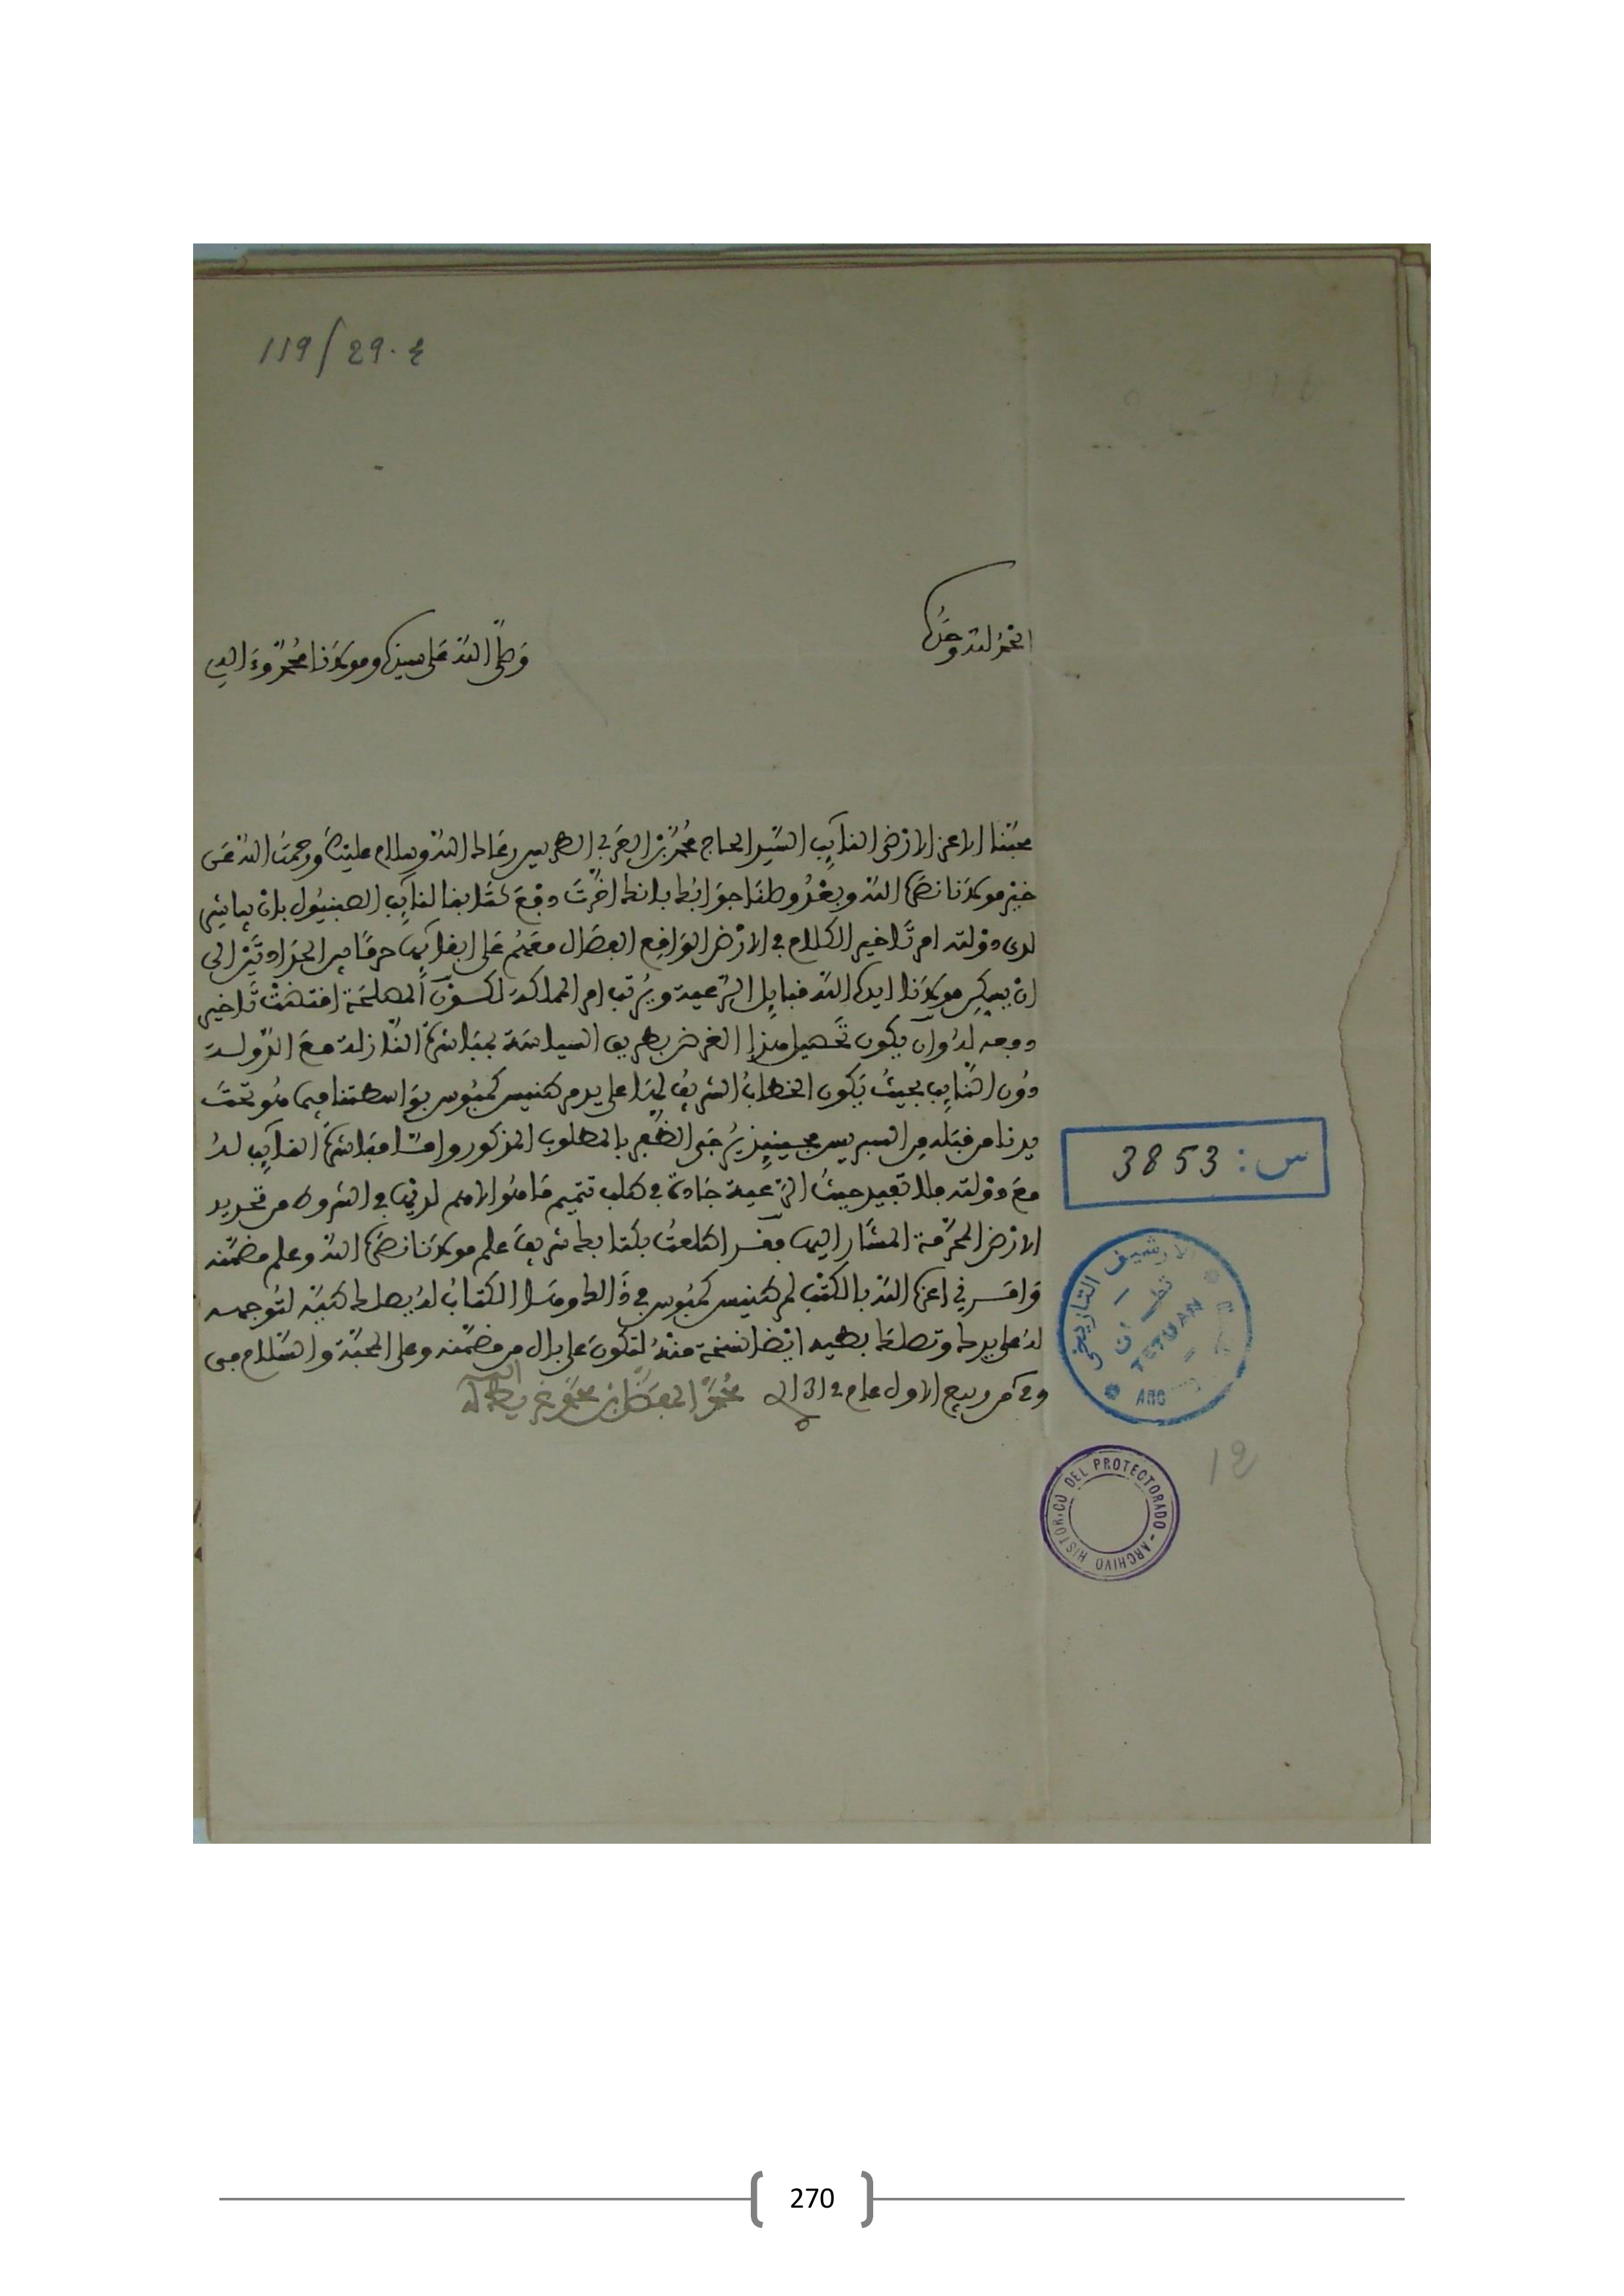 119/29.4
الحمد لله وحده
وصلى الله على سيدنا ومولانا محمد وءاله
محبنا الاعز الارضى النائب السيد الحاج محمد بن العربي الطريس رعاك الله وسلام عليك ورحمت الله عن
خير مولانا نصره الله وبعد وصلنا جوابك بانك اخرت دفع كتابنا لنائب الصبنيول بان يباشر
لدى دولته امر تاخير الكلام في الارض الواقع الفصال معهم على ابقائها حرما بين الحدادتين الى
ان يمكن مولانا ايده الله قبايل الرعية ويرتب امر المحاكمة لكون المصلحة اقتضت تاخير
دفعه له وان يكون تحصيل هذا الغرض بطريق السياسة بمباشرة النازلة مع الدولة
دون النائب بحيث يكون الخطاب الشريف لها على يد مرطنيس كمبوس بواسطتنا فيما هو تحت
يدنا من قبله فبالسبر يرجى الظفر بالمطلوب المذكور واما مباشرة النائب له
مع دولته فلا تفيد حيث الرعية جادة في طلب تتميم ما هو الاهم لديها في الشروط من تحديد
الارض المحرمة المشار اليها فقد اطلعت بكتابك شريف علم مولانا نصره الله وعلم مضمنه
وامرني اعزه الله بالكتب لمرطنيس كمبوس في ذالك وهذا الكتاب له يصلك طيه لتوجهه
له على يدك وتصلك بطيه ايضا نسخة منه لتكون على بال من مضمنه وعلى المحبة والسلام في
من ربيع الاول عام 1312
محمد المفضل بن محمد غريط الله
س: 3853
الارشيف التاريخي
تطوان
TETUAN
ARC
12
ARCHIVO HISTORICO DEL PROTECTORADO
270